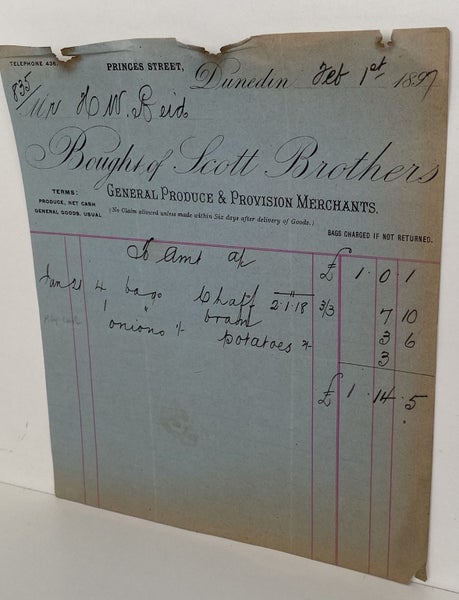 TELEPHONE 436.
PRINCES STREET, Dunedin Feb 1st 1897
835
Mr H W. Reid
Bought of Scott Brothers
GENERAL PRODUCE & PROVISION MERCHANTS.
TERMS:
PRODUCE, NET CASH
GENERAL GOODS, USUAL
(No Claim allowed unless made within Six days after delivery of Goods.)
BAGS CHARGED IF NOT RETURNED.
To Amt £ 1 . 0 . 1
Jan 21 4 bags Chaff 2.1.18 3/3 7 10
1 " bran 3 6
onions potatoes 3
£ 1 . 14 . 5